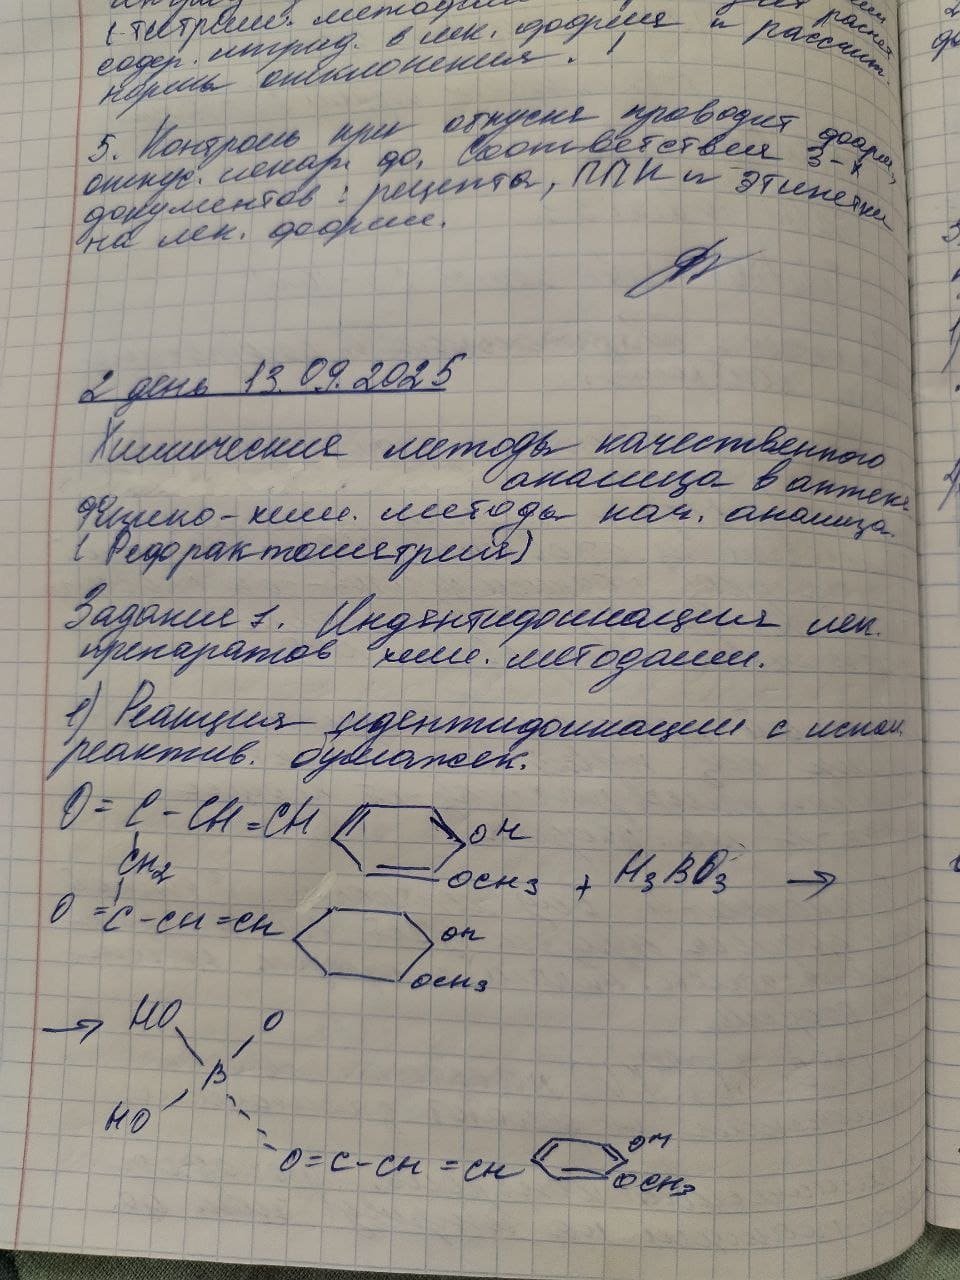 (-титрим. методом
содер. ингрид. в лек. форме и рассчит.
нормы отклонения.
5. Контроль при отпуске проводит фарм,
отпус. лекар. ф. Соответствия 3-х
документов: рецепта, ППК и этикетки
на лек. форме.
2 день 13.09.2025
Химические методы качественного
анализа в аптеке
Физико-хим. методы кач. анализа.
(Рефорактометрия)
Задание 1. Индентификация лек.
препаратов хим. методами.
1) Реакция идентификации с испол.
реактив. бумажек.
O=C-CH=CH OH
OCH3 + H3BO3 →
CH2
O=C-CH=CH OH
OCH3
→ HO O
B
HO
O=C-CH=CH OH
OCH3